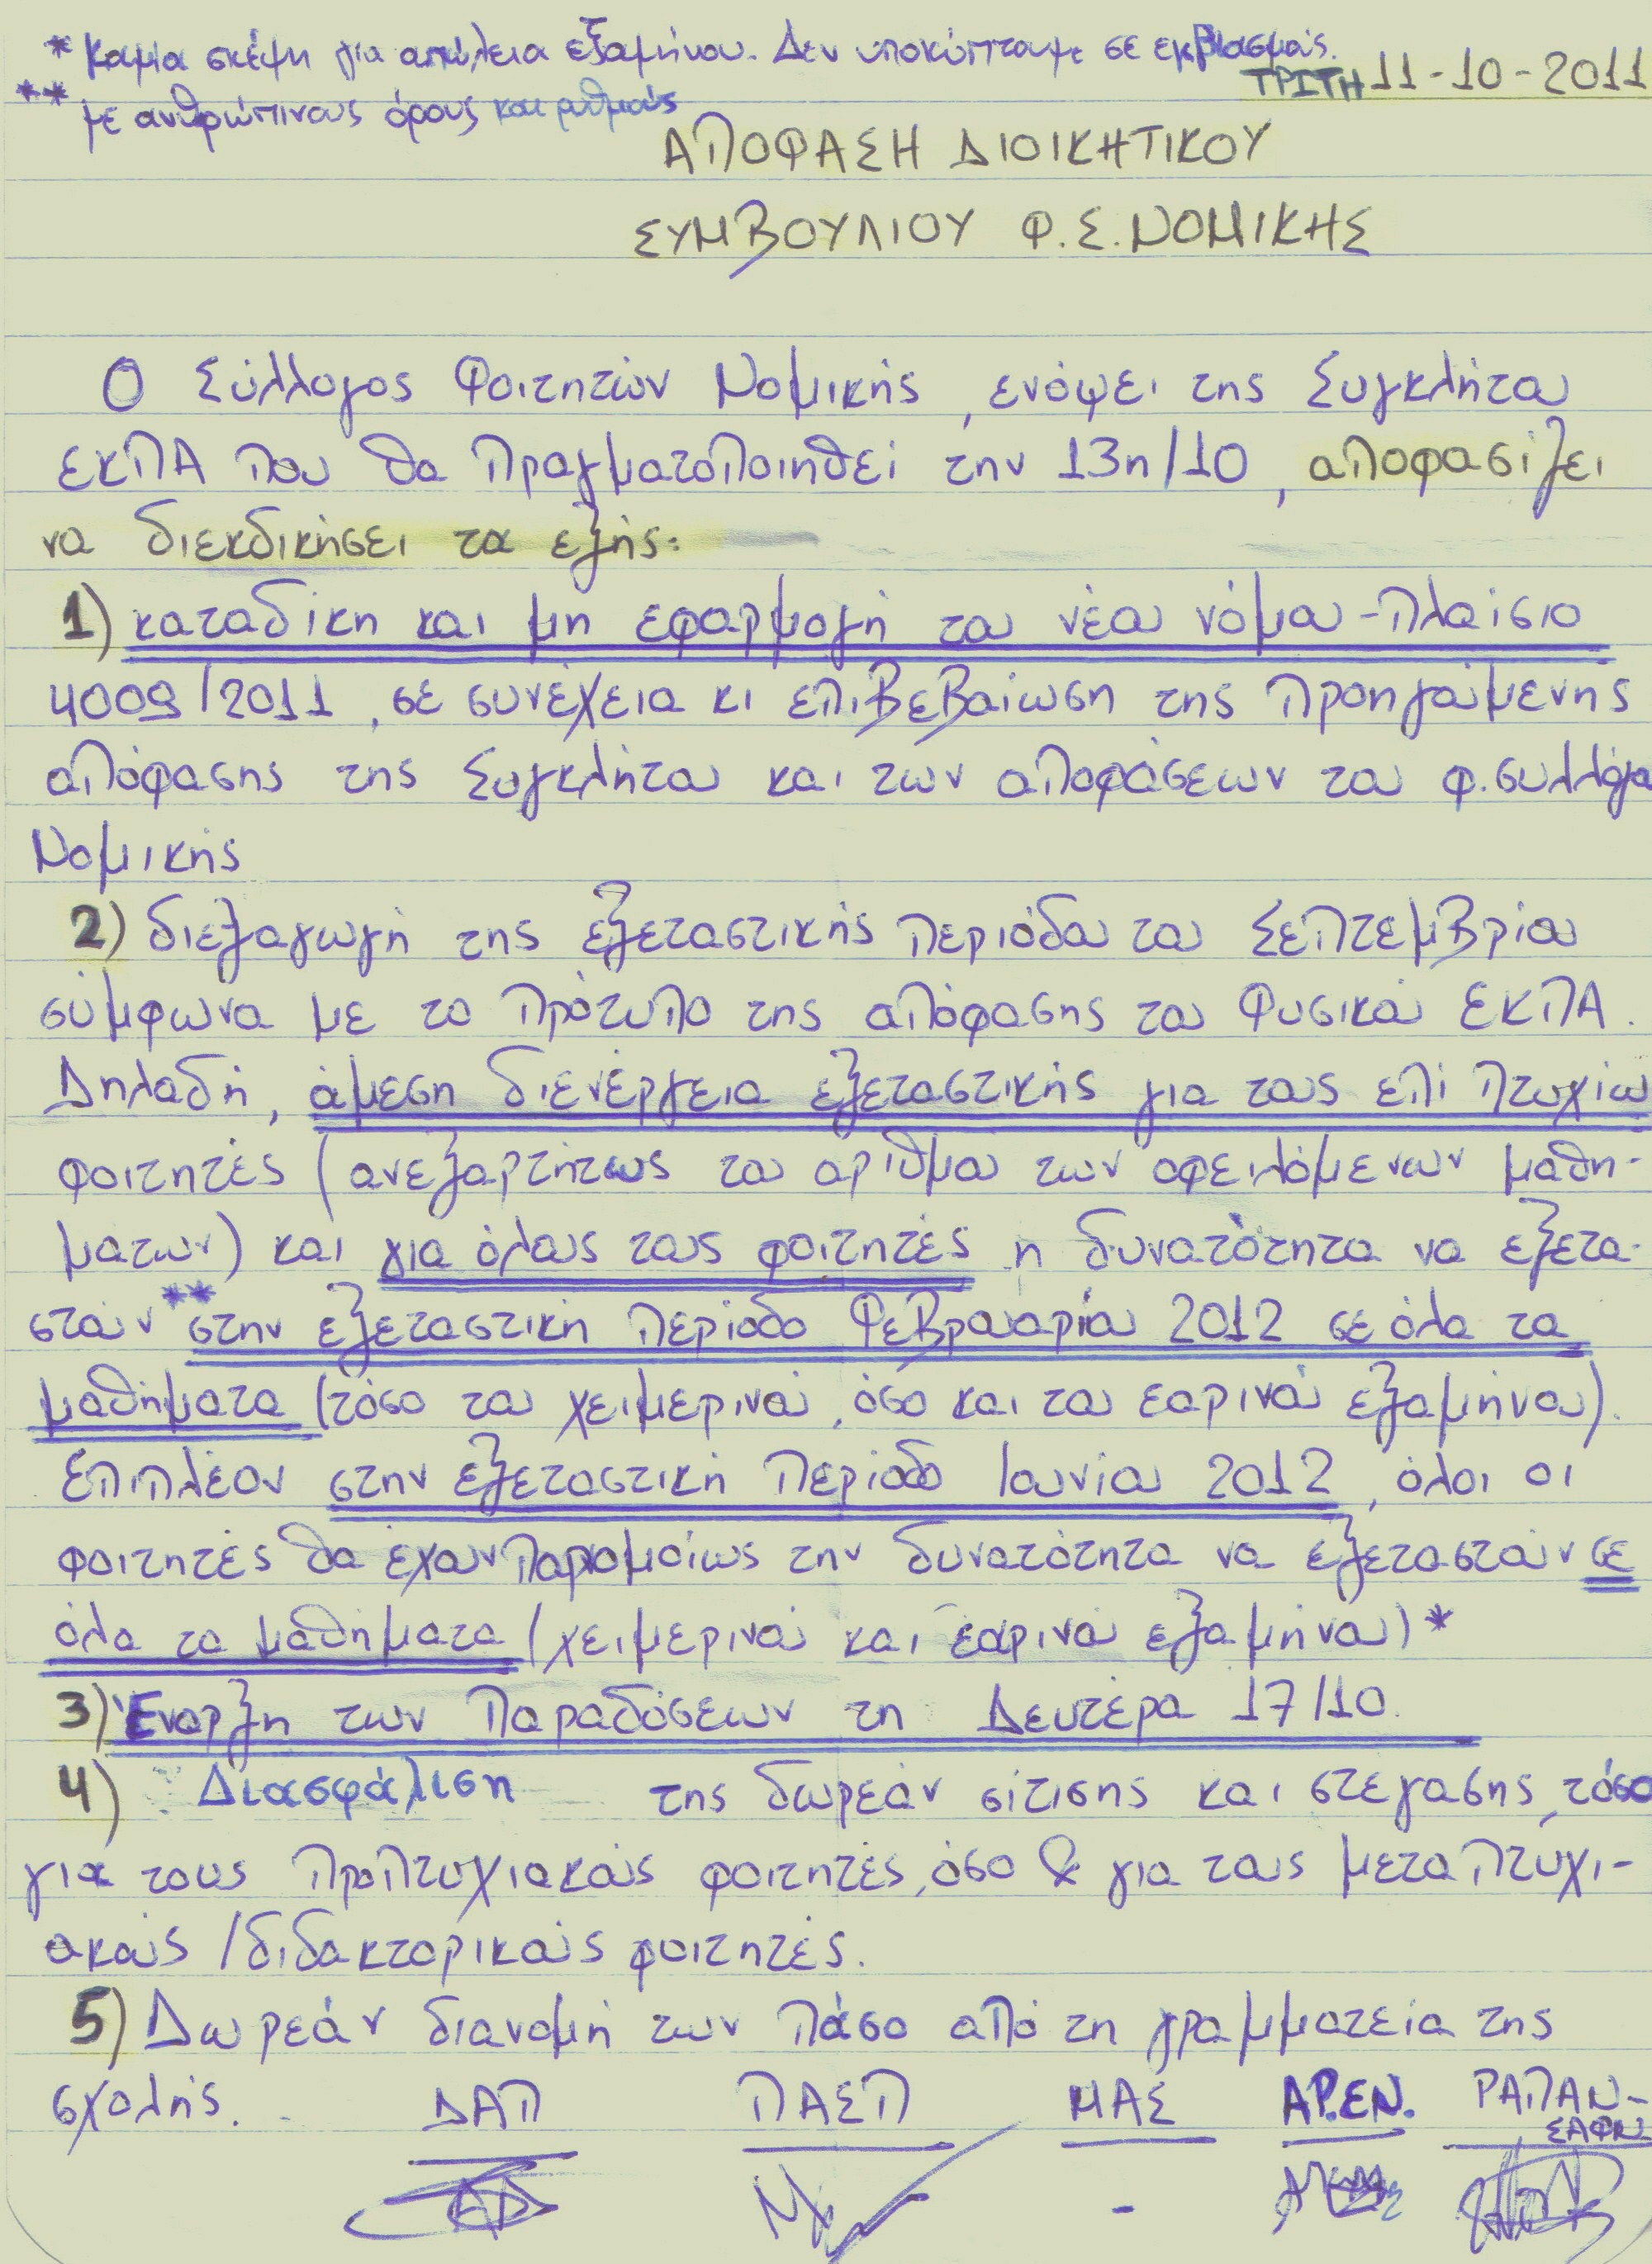 * Καμία σκέψη για απώλεια εξαμήνου. Δεν υποκύπτουμε σε εκβιασμούς.
ΤΡΙΤΗ 11-10-2011
** με ανθρώπινους όρους και ρυθμούς
ΑΠΟΦΑΣΗ ΔΙΟΙΚΗΤΙΚΟΥ
ΣΥΜΒΟΥΛΙΟΥ Φ.Σ. ΝΟΜΙΚΗΣ
Ο Σύλλογος Φοιτητών Νομικής, ενόψει της Συγκλήτου
ΕΚΠΑ που θα πραγματοποιηθεί την 13η/10, αποφασίζει
να διεκδικήσει τα εξής:
1) καταδίκη και μη εφαρμογή του νέου νόμου-πλαίσιο
4009/2011, σε συνέχεια κι επιβεβαίωση της προηγούμενης
απόφασης της Συγκλήτου και των αποφάσεων του φ.συλλόγου
Νομικής
2) διεξαγωγή της εξεταστικής περιόδου του Σεπτεμβρίου
σύμφωνα με το πρότυπο της απόφασης του Φυσικού ΕΚΠΑ.
Δηλαδή, άμεση διενέργεια εξεταστικής για τους επί πτυχίω
φοιτητές (ανεξαρτήτως του αριθμού των οφειλόμενων μαθη-
μάτων) και για όλους τους φοιτητές η δυνατότητα να εξετα-
στούν** στην εξεταστική περίοδο Φεβρουαρίου 2012 σε όλα τα
μαθήματα (τόσο του χειμερινού, όσο και του εαρινού εξαμήνου).
Επιπλέον στην εξεταστική περίοδο Ιουνίου 2012, όλοι οι
φοιτητές θα έχουν παρομοίως την δυνατότητα να εξεταστούν σε
όλα τα μαθήματα (χειμερινού και εαρινού εξαμήνου)*
3) Έναρξη των παραδόσεων τη Δευτέρα 17/10.
4) Διασφάλιση της δωρεάν σίτισης και στέγασης, τόσο
για τους προπτυχιακούς φοιτητές, όσο & για τους μεταπτυχι-
ακούς / διδακτορικούς φοιτητές.
5) Δωρεάν διανομή των πάσο από τη γραμματεία της
σχολής.
ΔΑΠ ΠΑΣΠ ΜΑΣ ΑΡ.ΕΝ. ΡΑΠΑΝ-
ΣΑΦΝ
-